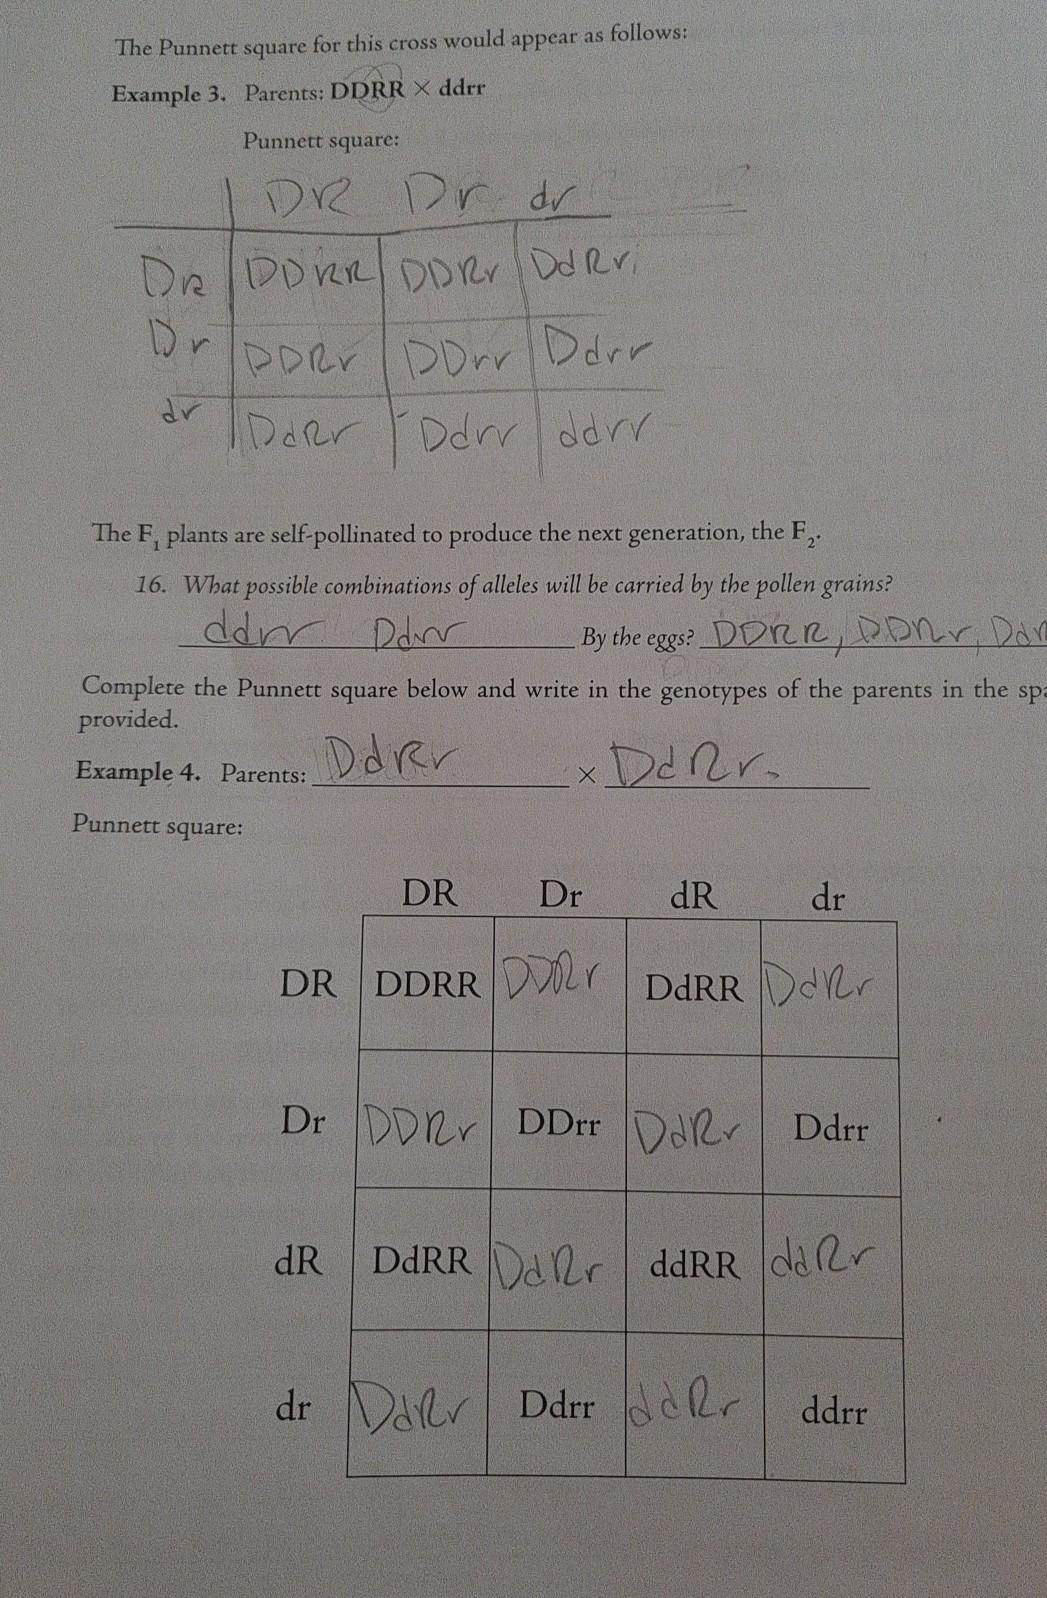 The Punnett square for this cross would appear as follows:
Example 3. Parents: DDRR × ddrr
Punnett square:
DR Dr dr
DR DDRR DDRr DdRr
Dr DDRr DDrr Ddrr
dr DdRr Ddrr ddrr
The F₁ plants are self-pollinated to produce the next generation, the F₂.
16. What possible combinations of alleles will be carried by the pollen grains?
ddrr Ddrr By the eggs? DDRR, DDRr,
Complete the Punnett square below and write in the genotypes of the parents in the
provided.
Example 4. Parents: DdRr × DdRr.
Punnett square:
DR Dr dR dr
DR DDRR DDRr DdRR DdRr
Dr DDRr DDrr DdRr Ddrr
dR DdRR DdRr ddRR ddRr
dr DdRr Ddrr ddRr ddrr